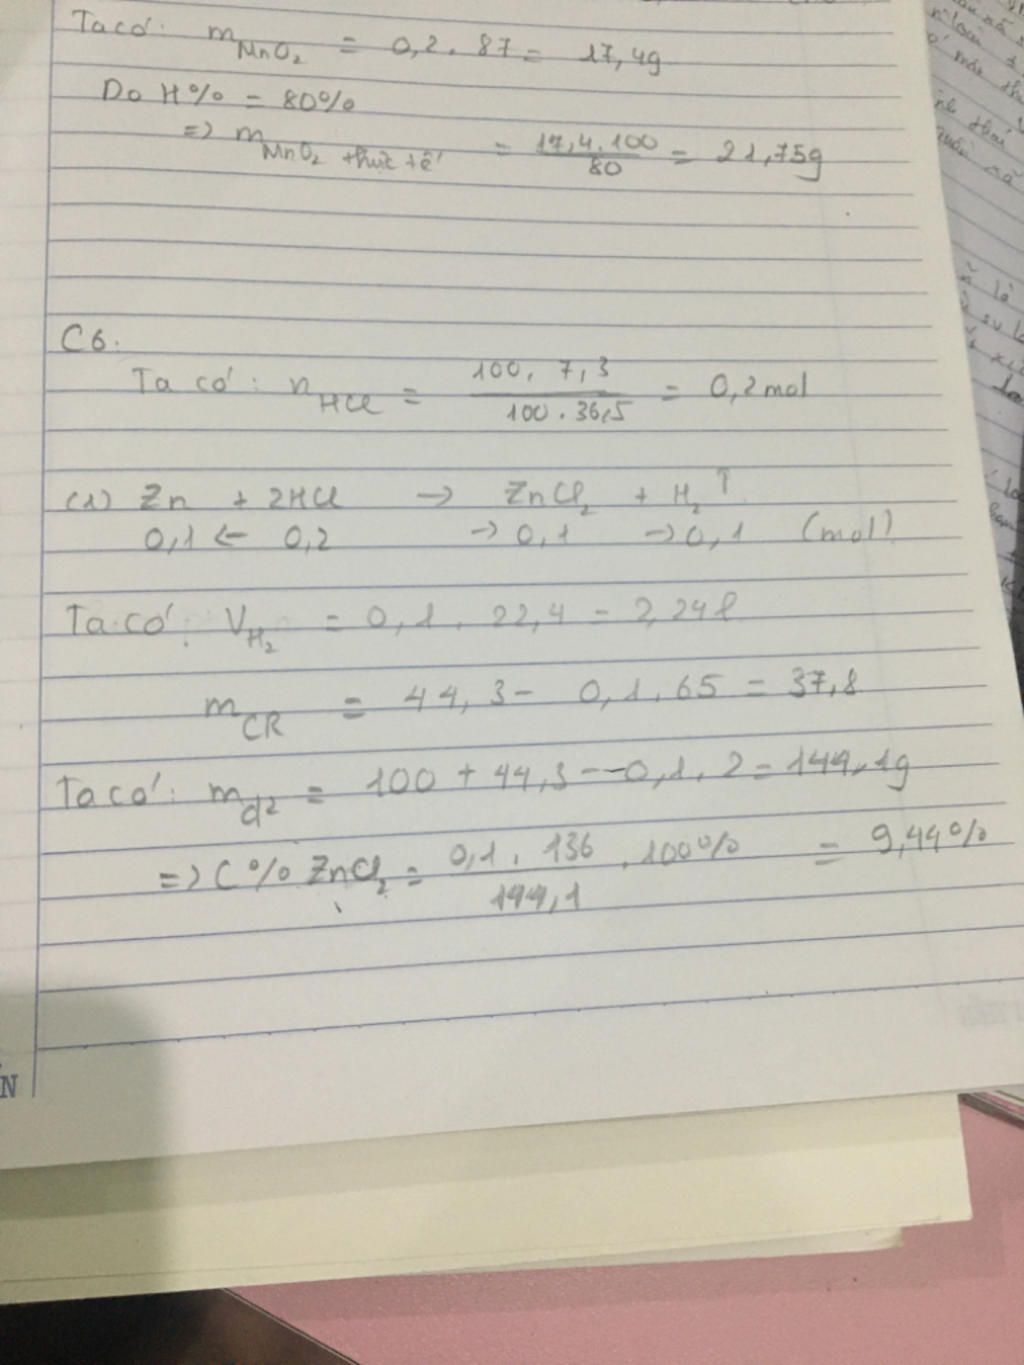 Ta có: m MnO₂ = 0,2 . 87 = 17,4g
Do H% = 80%
=> m MnO₂ thực tế = 17,4.100 / 80 = 21,75g
C6.
Ta có: n HCl = 100. 7,3 / 100 . 36,5 = 0,2 mol
(1) Zn + 2HCl → ZnCl₂ + H₂↑
0,1 ← 0,2 → 0,1 → 0,1 (mol)
Ta có: V H₂ = 0,1 . 22,4 = 2,24 l
m CR = 44,3 - 0,1.65 = 37,8
Ta có: m d² = 100 + 44,3 - 0,1.2 = 144,1g
=> C% ZnCl₂ = 0,1 . 136 / 144,1 . 100% = 9,44%
N